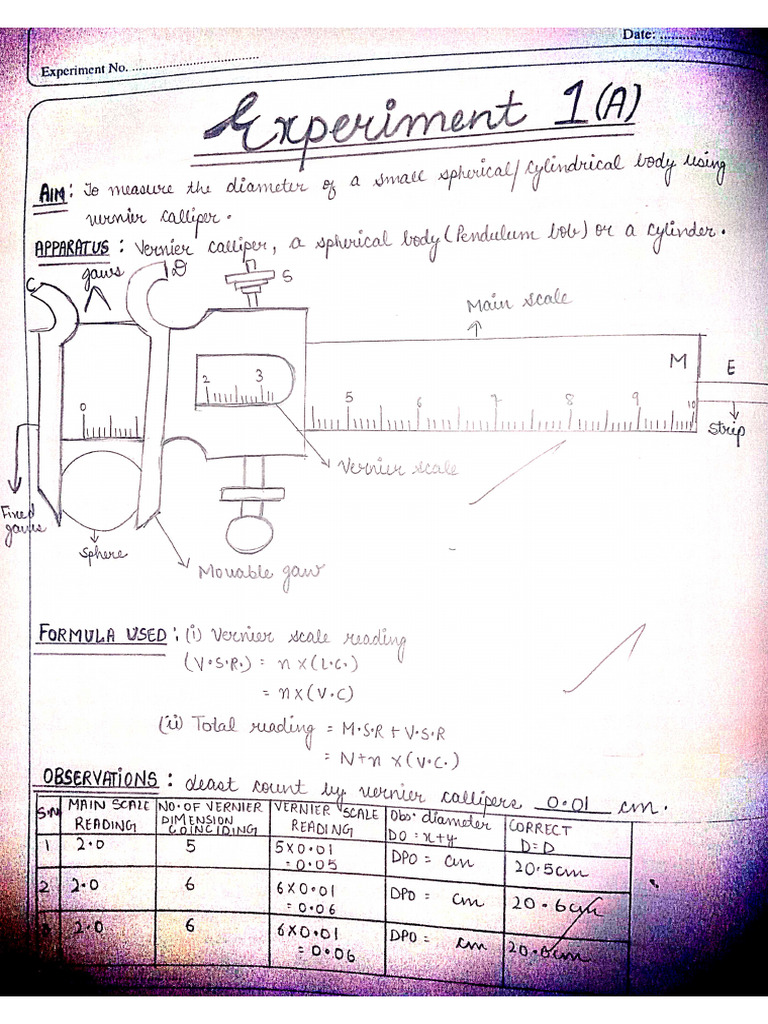 Date: ...............
Experiment No. ......................................
Experiment 1(A)
AIM: To measure the diameter of a small spherical/cylindrical body using
vernier calliper.
APPARATUS: Vernier calliper, a spherical body (Pendulum bob) or a cylinder.
gaws
C
D
S
Main scale
M
E
2 3
0
5 6 7 8 9 10
strip
Vernier scale
Fixed
gaws
sphere
Movable gaw
FORMULA USED: (i) Vernier scale reading
(V.S.R.) = n x (L.C.)
= n x (V.C)
(ii) Total reading = M.S.R + V.S.R
= N + n x (V.C.)
OBSERVATIONS: Least count by vernier callipers 0.01 cm.
S.N MAIN SCALE READING NO. OF VERNIER DIMENSION COINCIDING VERNIER SCALE READING Obs. diameter DO = x+y CORRECT D = D
1 2.0 5 5 x 0.01 = 0.05 DPO = cm 20.5cm
2 2.0 6 6 x 0.01 = 0.06 DPO = cm 20.6cm
3 2.0 6 6 x 0.01 = 0.06 DPO = cm 20.6cm